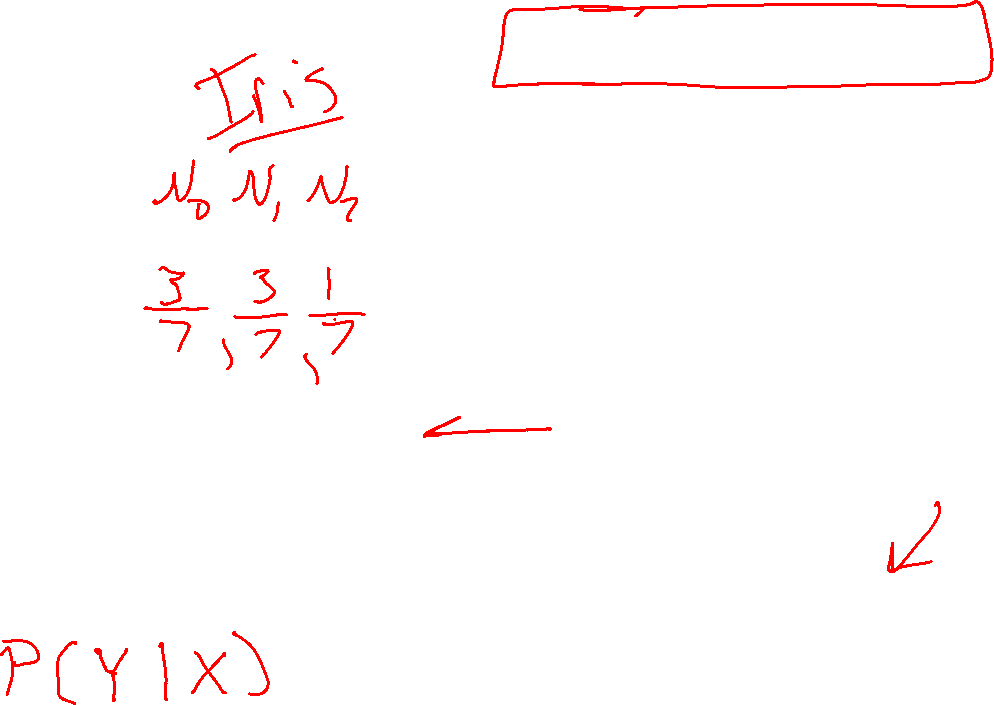 Iris
N₀ N₁ N₂
3/7, 3/7, 1/7
P(Y|X)